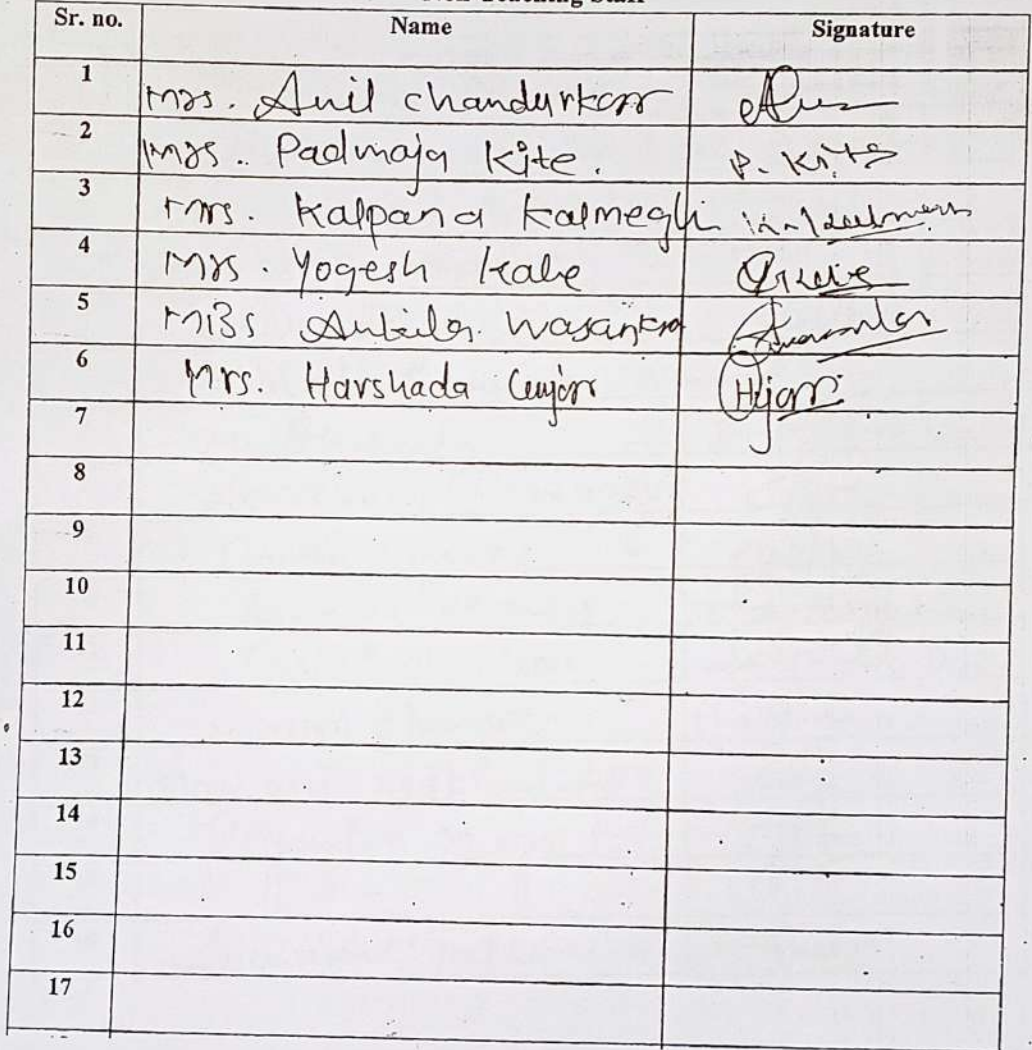 Teaching Staff
Sr. no. Name Signature
1 Mrs. Anil chandurkar
2 Mrs. Padmaja Kite. P. Kite
3 Mrs. Kalpana Kalmegh
4 Mrs. Yogesh Kale
5 Miss Ankita Wasankar
6 Mrs. Harshada Gujar Hjar
7
8
9
10
11
12
13
14
15
16
17